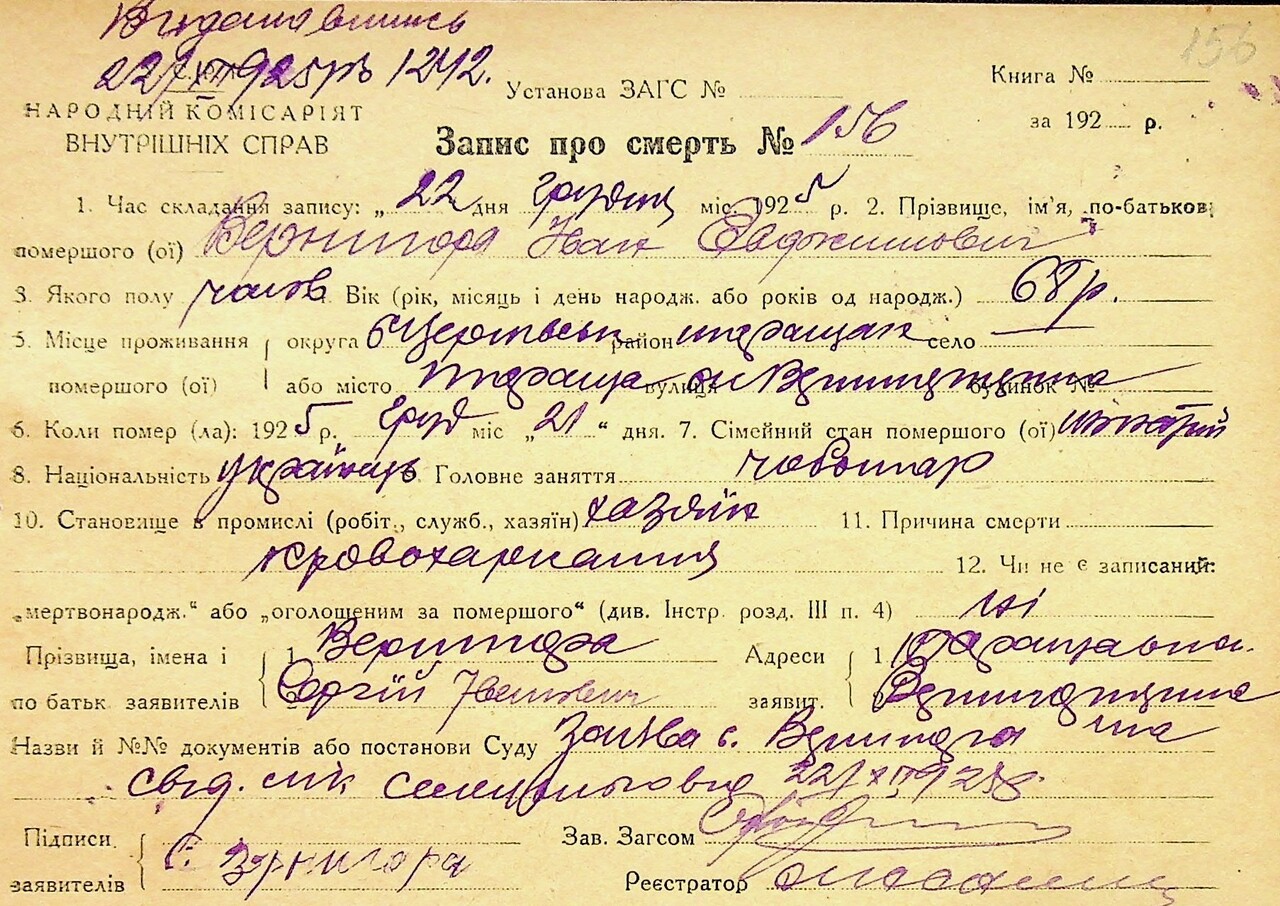 22/XII 1925 р № 1242.
156
НАРОДНІЙ КОМІСАРІЯТ
ВНУТРІШНІХ СПРАВ
Установа ЗАГС №
Книга №
за 192 р.
Запис про смерть № 156
1. Час складання запису: „ 22 дня грудня міс. 1925 р. 2. Прізвище, ім'я, по-батькові
помершого (ої) Вернигора Іван Евдокимович
3. Якого полу чолов Вік (рік, місяць і день народж. або років од народж.) 68 р.
5. Місце проживання округа БЦерківськ район таращан село
помершого (ої) або місто Тараща вулиця будинок №
6. Коли помер (ла): 1925 р. груд міс „ 21 “ дня. 7. Сімейний стан помершого (ої) жонатий
8. Національність українець Головне заняття чоботар
10. Становище в промислі (робіт., служб., хазяїн) хазяїн 11. Причина смерти
кровохаркання 12. Чи не є записаний:
„мертвонародж.“ або „оголошеним за помершого“ (див. Інстр. розд. III п. 4) ні
Прізвища, імена і 1 Вернигора Адреси 1 Тараща вул.
по батьк. заявителів 2 Сергій Іванович заявит. 2
Назви й №№ документів або постанови Суду Заява с. Вернигора на
свід. лік 22/XII 925 р.
Підписи
заявителів С. Вернигора
Зав. Загсом
Реєстратор